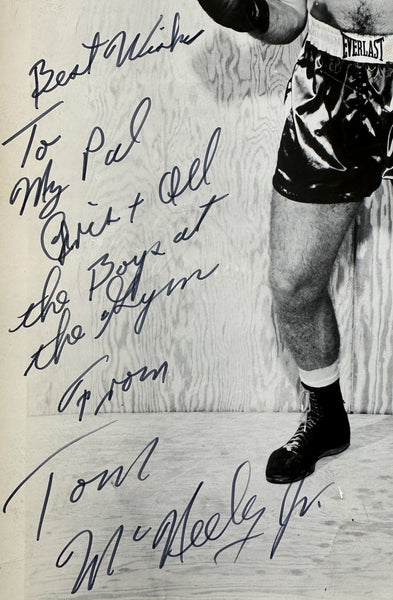 Best Wishes
To
My Pal
+ All
the Boys at
the Gym
From
Tom
McNeeley Jr.
EVERLAST